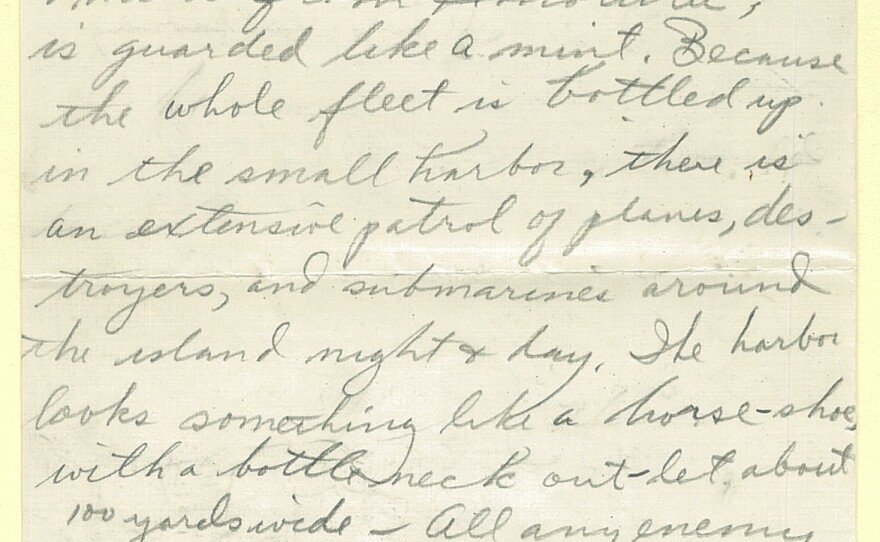 is guarded like a mint. Because
the whole fleet is bottled up
in the small harbor, there is
an extensive patrol of planes, des-
troyers, and submarines around
the island night & day. The harbor
looks something like a horse-shoe,
with a bottle neck out-let about
100 yards wide – All any enemy